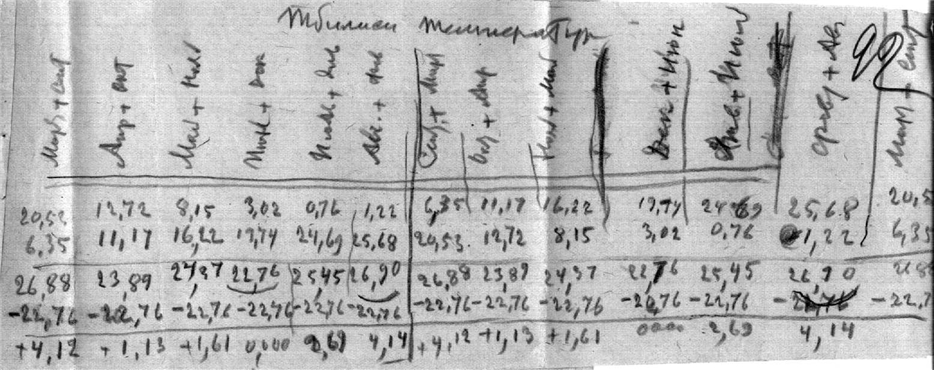 Тбилиси температур
Март + сент Апр + окт Май + ноя Июн + дек Июль + янв Авг. + фев Сент + март Окт + апр Ноя + май Дек + июн Янв + июл Февр + авг Март + сент
20,52 12,72 8,15 3,02 0,76 1,22 6,35 11,17 16,22 19,74 24,69 25,68 20,5
6,35 11,17 16,22 19,74 24,69 25,68 20,53 12,72 8,15 3,02 0,76 1,22 6,35
26,88 23,89 24,37 22,76 25,45 26,90 26,88 23,89 24,37 22,76 25,45 26,90
-22,76 -22,76 -22,76 -22,76 -22,76 -22,76 -22,76 -22,76 -22,76 -22,76 -22,76 -22,76 -22,7
+4,12 +1,13 +1,61 0,000 2,69 4,14 +4,12 +1,13 +1,61 0000 2,69 4,14